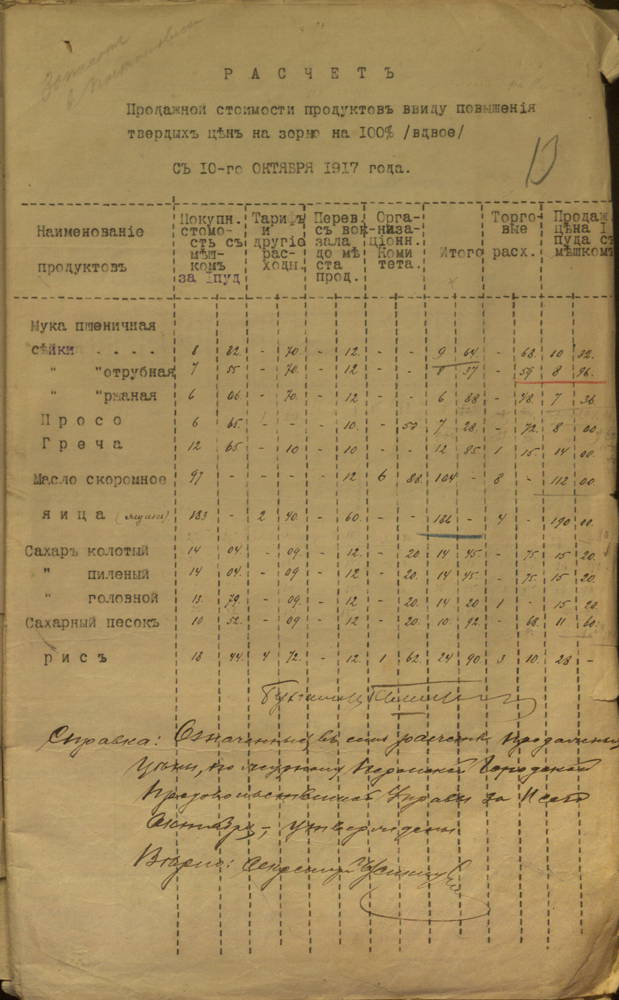 РАСЧЕТЪ
Продажной стоимости продуктовъ ввиду повышенія
твердыхъ цѣнъ на зерно на 100% /вдвое/
СЪ 10-го ОКТЯБРЯ 1917 года.
Наименованіе продуктовъ | Покупн. стомо-сть съ мѣш-комъ за 1пуд | Тарифъ и другіе рас-ходы. | Перев. съ вок-зала до мѣ ста прод. | Орга-низа-ціонн. Коми тета. | Итого | Торго-вые расх. | Продаж цѣна 1 пуда съ мѣшкомъ
Мука пшеничная
сѣйки . . . . 8 82. - 70. - 12. - - 9 64 - 68. 10 32.
" "отрубная 7 55 - 70. - 12 - - 8 37 - 59 8 96.
" "ржаная 6 06. - 70. - 12 - - 6 88 - 48. 7 36.
Просо 6 65. - - - 10. - 53 7 28. - 72. 8 00.
Греча 12 65 - 10 - 10 - - 12 85. 1 15. 14 00.
Масло скоромное 97 - - - - 12 6 88. 104 - 8 - 112 00.
яица 183 - 2 40. - 60. - - 186 - 4 - 190 00.
Сахаръ колотый 14 04. - 09. - 12. - 20. 14 45 - 75. 15 20.
" пиленый 14 04. - 09 - 12 - 20. 14 45. - 75. 15 20.
" головной 13. 79. - 09. - 12 - 20. 14 20 1 - 15 20
Сахарный песокъ 10 52. - 09 - 12 - 20. 10. 92 - 68. 11 60.
рисъ 18 44. 4 72. - 12. 1 62. 24 90. 3 10. 28 -
Справка: Означенные въ сем расчете продажные
цены, по
Городской
Продовольственной Управы за 11 сего
Октября, утверждены
Верно: Секретарь